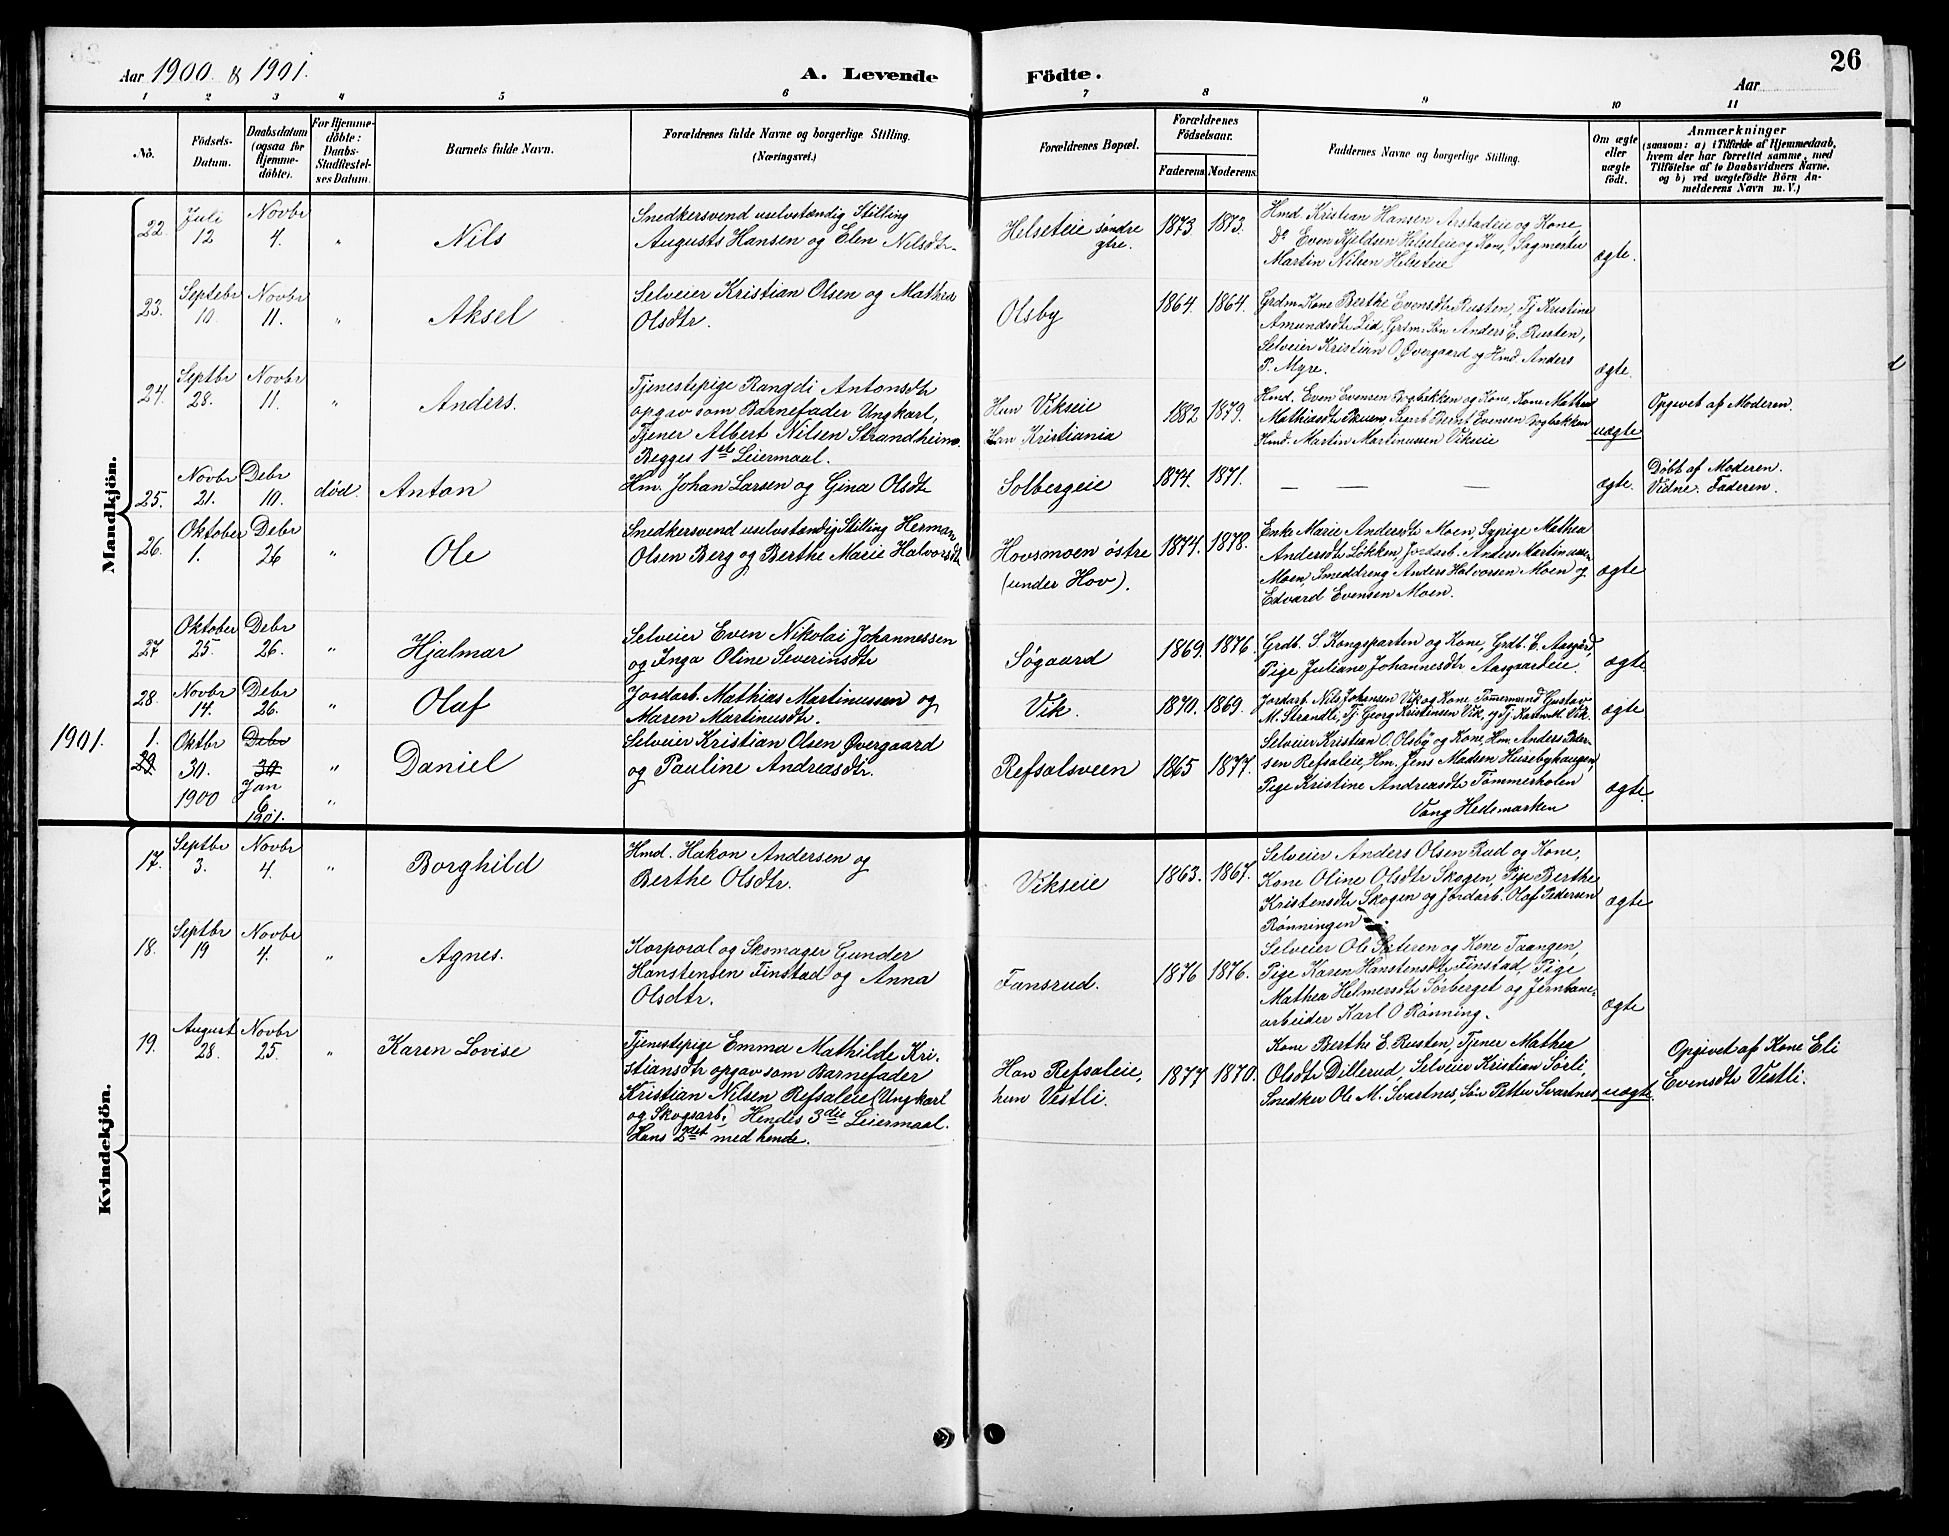 Aar 1900 & 1901.
A. Levende Födte.
Aar
26
1 2 3 4 5 6 7 8 9 10 11
No.
Födsels-Datum.
Daabsdatum (ogsaa for Hjemmedöbte).
For Hjemmedöbte: Daabs-Stadfestelses Datum.
Barnets fulde Navn.
Forældrenes fulde Navne og borgerlige Stilling.
(Næringsvei.)
Forældrenes Bopæl.
Forældrenes Födselsaar.
Faderens Moderens
Faddernes Navne og borgerlige Stilling.
Om ægte eller uægte födt.
Anmærkninger
(saasom: a) i Tilfælde af Hjemmedaab,
hvem der har forrettet samme, med
Tilföielse af to Daabsvidners Navne,
og b) ved uægtefödte Börn An-
melderens Navn m. V.)
Mandkjön.
22. Juli 12 Novbr 4. " Nils
Snedkersvend uselvstændig Stilling
Augusts Hansen og Elen Nilsdtr.
Helseteie søndre gtre.
1873 1873.
Hmd Kristian Hansen Arstadeie og Kone,
Do Even Kjeldsen Helseteie og Kone, Sagmester
Martin Nilsen Helseteie
ægte.
23. Septebr 10 Novbr 11. " Aksel
Selveier Kristian Olsen og Mathea
Olsdtr.
Olsby
1864. 1864.
Grdm. Kone Berthe Evensdtr Rusten, Tj Kristine
Amundsdtr Lid, Grdm. Søn Anders E. Rusten,
Selveier Kristian O. Øvergaard og Hmd. Anders
P. Myre.
ægte.
24. Septbr 28. Novbr 11. " Anders.
Tjenestepige Rangdi Antonsdtr
opgav som Barnefader Ungkarl,
Tjener Albert Nilsen Strandheim.
Begges 1ste Leiermaal.
Hun Vikseie
Han Kristiania
1882 1879.
Hmd. Even Evensen Bogbakken og Kone, Kone Mathea
Mathiasdtr, Sagarb Bernt Evensen Bogbakken
Hmd. Martin Martinussen Vikseie
uægte
Opgivet af Moderen.
25. Novbr 21. Debr 10. død. Anton
Hm. Johan Larsen og Gina Olsdtr
Solbergeie
1874. 1871.
— — —
ægte.
Döbt af Moderen.
Vidne. Faderen.
26. Oktober 1. Debr 26 " Ole
Snedkersvend uselvstændig Stilling Herman
Olsen Berg og Berthe Marie Halvorsdtr
Hovsmoen østre
(under Hov).
1874. 1878.
Enke Marie Andersdtr Moen, Sypige Mathea
Andersdtr Løkken, Jordarb. Anders Martinussen
Moen, Smeddreng Anders Halvorsen Moen og
Edvard Evensen Moen.
ægte
27 Oktober 25. Debr 26. " Hjalmar
Selveier Even Nikolai Johannessen
og Inga Oline Severinsdtr
Søgaard
1869. 1876
Grdb. S. Kongsparten og Kone, Grdb. E. Aasgård,
Pige Juliane Johannesdtr Aasgaarteie.
ægte
28. Novbr 14. Debr 26. " Olaf
Jordarb. Mathias Martinussen og
Maren Martinusdtr.
Vik.
1870. 1869.
Jordarb. Nils Johansen Vik og Kone, Tømmermand Gustav
M. Strandli, Tj. Georg Kristinsen Vik, og Tj. Vik.
ægte
1901. 1. 29 Oktbr 30. 1900 Debr 30 Jan 6 1901. " " Daniel
Selveier Kristian Olsen Øvergaard
og Pauline Andreasdtr.
Refsalsveen
1865 1877.
Selveier Kristian O. Olsby og Kone, Hm. Anders Peter-
sen Refsaleie, Hm. Jens Madsen Husebyhaugen,
Pige Kristine Andreasdtr Tømmerholen
Vang Hedemarken
ægte.
Kvindekjön.
17. Septbr 3. Novbr 4. " Borghild
Hmd. Hakon Andersen og
Berthe Olsdtr.
Vikseie
1863. 1867.
Selveier Anders Olsen Rud og Kone,
Kone Oline Olsdtr Skogen, Pige Berthe
Kristensdtr Skogen og Jordarb. Olaf Pedersen
Rønningen
ægte
18. Septbr 19 Novbr 4. " Agnes.
Korporal og Skomager Gunder
Hanstensen Finstad og Anna
Olsdtr.
Fansrud.
1876 1876.
Selveier Ole Sæteren og Kone Taangen,
Pige Karen Hanstensdtr Finstad, Pige
Mathea Helmersdtr Sørberget og Jernbane-
arbeider Karl O Rønning.
ægte
19. August 28. Novbr 25. " Karen Lovise
Tjenestepige Emma Mathilde Kri-
stiansdtr opgav som Barnefader
Kristian Nilsen Refsaleie (Ungkarl
og Skogsarb.) Hendes 3die Leiermaal.
Hans 2det med hende.
Han Refsaleie,
hun Vestli.
1877 1870.
Kone Berthe E. Rusten, Tjener Mathea
Olsdtr Dillerud, Selveier Kristian Sörli,
Snedker Ole M. Svartnes, Søn Petter Svartnes
uægte.
Opgivet af Kone Eli
Evensdtr Vestli.